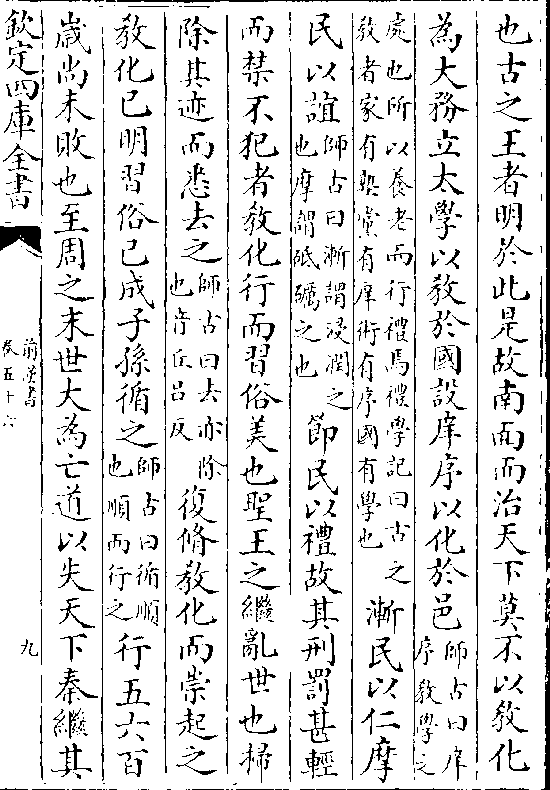 也古之王者明於此是故南面而治天下莫不以教化
為大務立太學以教於國設庠序以化於邑師古曰庠序教學之
處也所以養老而行禮焉禮學記曰古之教者家有塾黨有庠術有序國有學也漸民以仁摩
民以誼師古曰漸謂浸潤之也摩謂砥礪之也節民以禮故其刑罰甚輕
而禁不犯者教化行而習俗美也聖王之繼亂世也掃
除其迹而悉去之師古曰去亦除也音丘呂反復脩教化而崇起之
教化已明習俗已成子孫循之師古曰循順也順而行之行五六百
嵗尚未敗也至周之末世大為亡道以失天下奉繼其
欽定四庫全書
前漢書
卷五十六
九